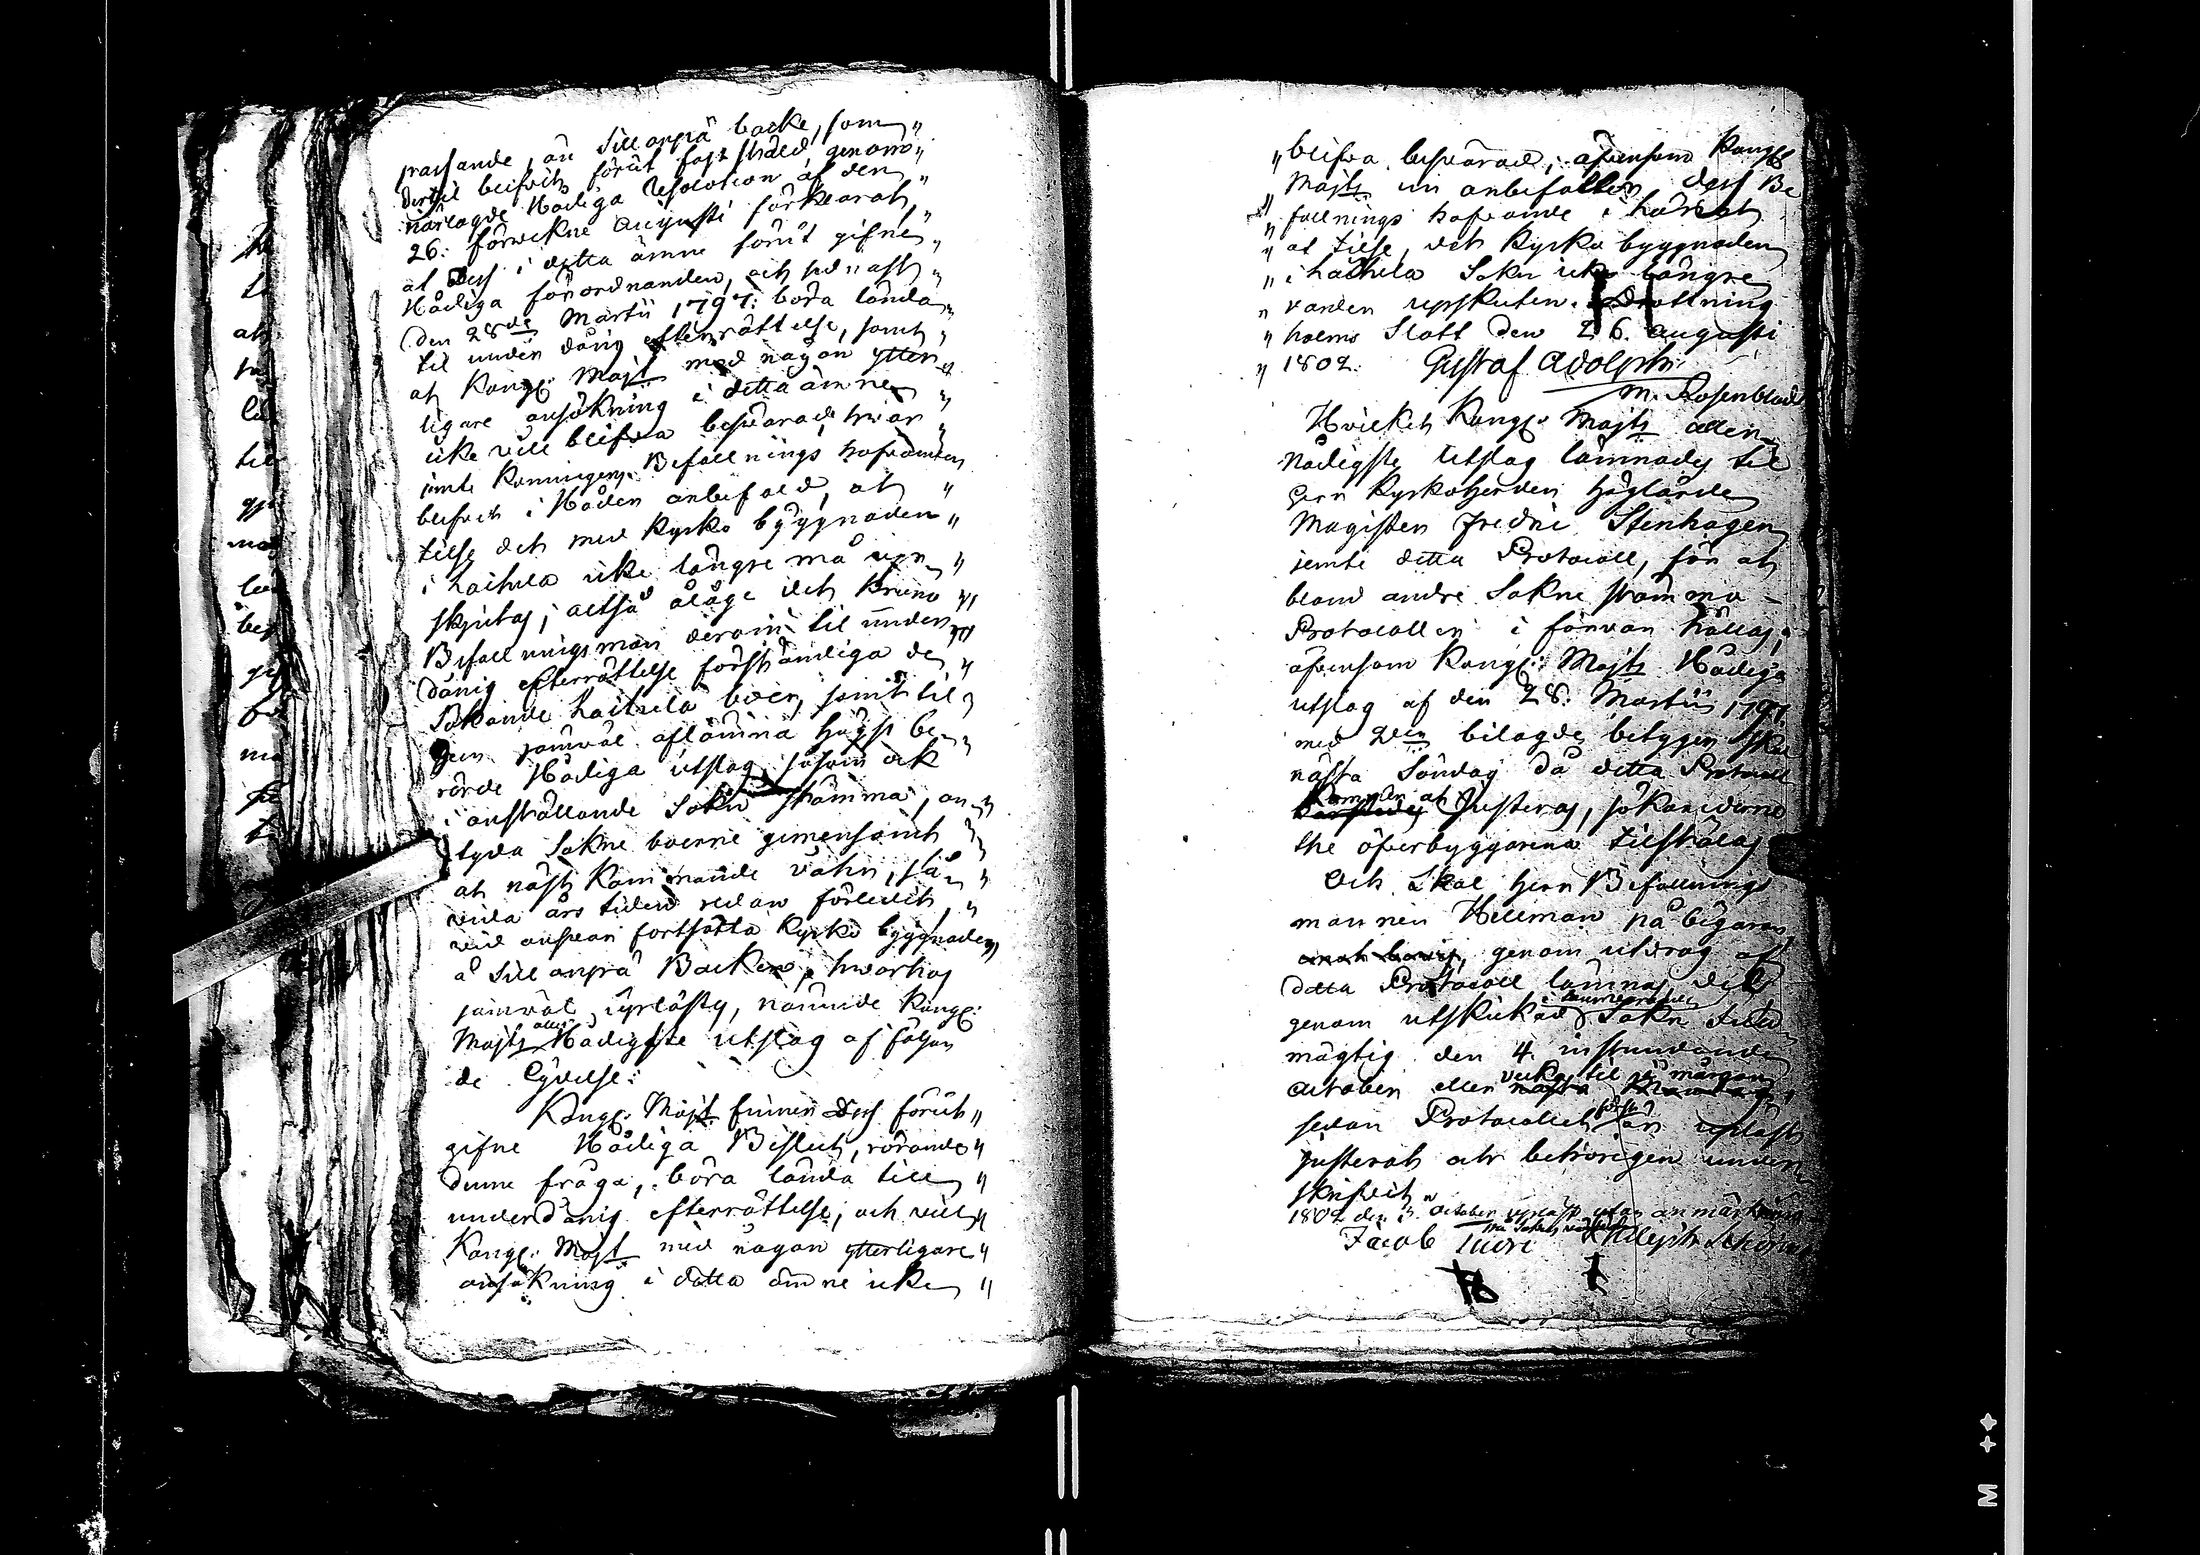 passande, än Sillanpää backe, som "
dertil blifvit förut fastställd genom "
närlagde Nådiga Resolution af den "
26.förvekne Augusti förklarat, "
at Dess i detta ämne förut gifne "
Nådiga förordnanden, och sednast "
den 28de Martii 1797. böra lända "
til underdånig efterrättelse, samt "
at Kongl. Majt med någon ytter "
ligare ansökning i detta ämne "
icke vill blifva besvärad, hvar "
jemte Konungens Befallnings hafvanden
blifvit i Nåder anbefald, at "
tilse det med Kyrko byggnaden "
i Laihela icke längre må upp "
skjutas; altså ålåge det Krono "
Befallningsman derom til under "
dånig efterrättelse förständiga de "
Sökande Laihela boer, samt til "
Herr jämväl aflämna högst be "
rörde Nådiga utslag, såsom ock
i anställande Sokne stämma, an "
tyda Sokne boerne gemensamt "
at näst kommande våhr, så "
vida års tiden redan förledit, "
vid ansvar fortsätta Kyrko byggnaden "
å Sillanpää Backen, hvarhos
jämväl uplästes, nämnde Kongl.
Majts allernådigste utslag af följan
de lydelse:
Kongl. Majt finner Dess förut "
gifne Nådiga Beslut, rörande "
denne fråga, böra lända till "
underdånig efterrättelse, och vill "
Kongl. Majt med någon ytterligare "
ansökning i detta ämne icke "
" blifva besvärad; äfvensom Kongl
" Majt nu anbefallen dess Be
" fallnings hafvande i Länet
" at tilse, det Kyrko byggnaden
" i Laihela Sokn icke längre
" varder upskuten. Drottning
" holms Slott den 26. Augusti
" 1802. Gustaf Adolph.
M. Rosenblad
Hvilket Kongl. Majts aller
Nådigste Utslag lämnades til
Herr Kyrkoherden höglärde
Magisten Fredric Stenhagen
jemte detta Protocoll, för at
bland andre Sokne stämmo
Protocoller i förvar hållas;
äfvensom Kongl. Majts Nådiga
utslag af den 28. Martii 1797
med bilagde betygen skal
nästa Söndag då detta Protocoll
kommer at Justeras, sökanderne
the öfverbyggarena tilställas
Och Skal Herr Befallnings
mannen Hellman på begäran,
genom utdrag af
detta Protocoll lämnas del
genom utskickad Sokn
mägtig den 4. instundande
October eller vecka til
sedan Protocollet först är upläst
justerat och behörigen under
skrifvit.
1802 den 3. October upläst utan anmärkning
Jacob